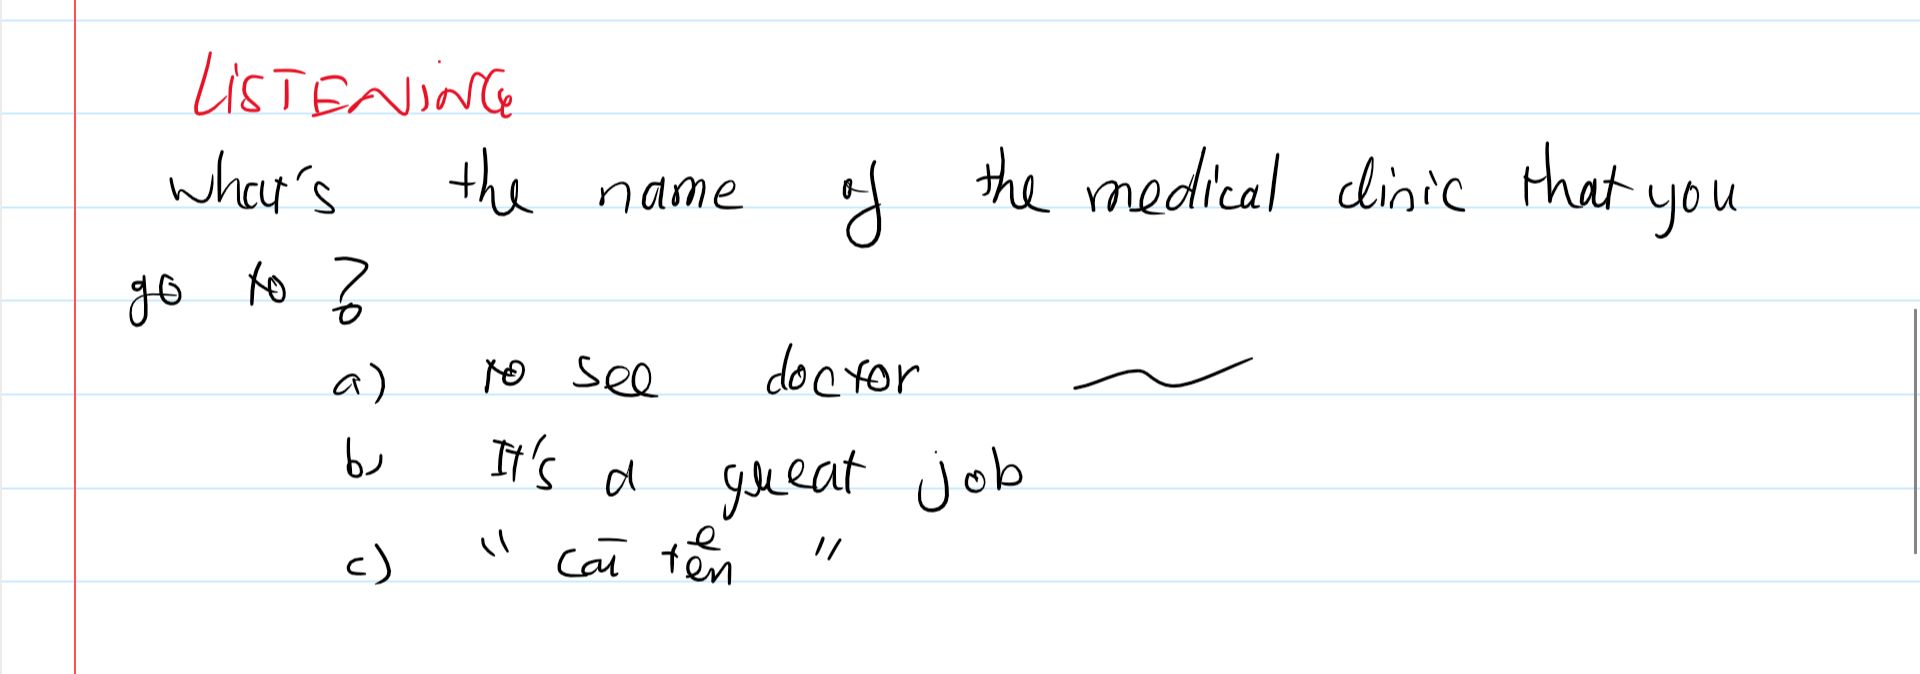 LiSTENiNG
what's the name of the medical clinic that you
go to?
a) to see doctor
b) It's a great job
c) " cái tên "